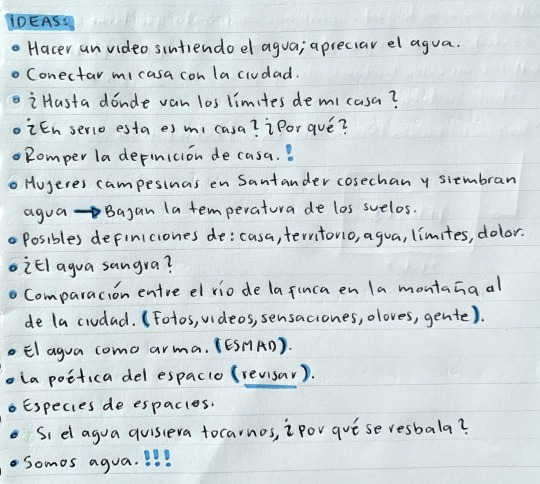 IDEAS:
• Hacer un video sintiendo el agua; apreciar el agua.
• Conectar mi casa con la ciudad.
• ¿Hasta dónde van los límites de mi casa?
• ¿En serio esta es mi casa? ¿Por qué?
• Romper la definición de casa.!
• Mujeres campesinas en Santander cosechan y siembran
agua → Bajan la temperatura de los suelos.
• Posibles definiciones de: casa, territorio, agua, límites, dolor.
• ¿El agua sangra?
• Comparación entre el río de la finca en la montaña al
de la ciudad. (Fotos, videos, sensaciones, olores, gente).
• El agua como arma. (ESMAD).
• La poética del espacio (revisar).
• Especies de espacios.
• Si el agua quisiera tocarnos, ¿por qué se resbala?
• Somos agua.!!!